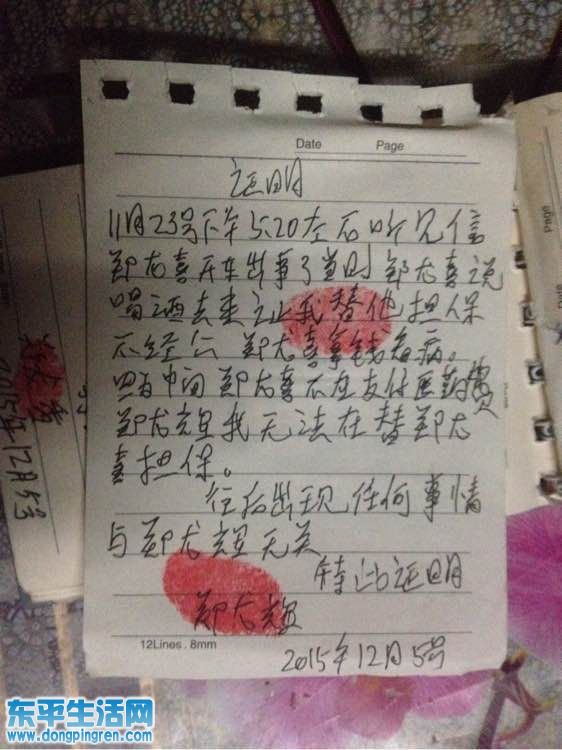 Date Page
证明
11月23号下午5:20左右听兄信
郑龙喜开车出事了当时郑龙喜说
喝酒去查让我替他担保
不经公 郑龙喜拿钱看病。
中间郑龙喜不在支付医药费
郑龙辉我无法在替郑龙
喜担保。
往后出现任何事情
与郑龙辉无关
特此证明
郑龙辉
12Lines . 8mm
2015年12月5号
2015年12月5号
Page
东平生活网
www.dongpingren.com